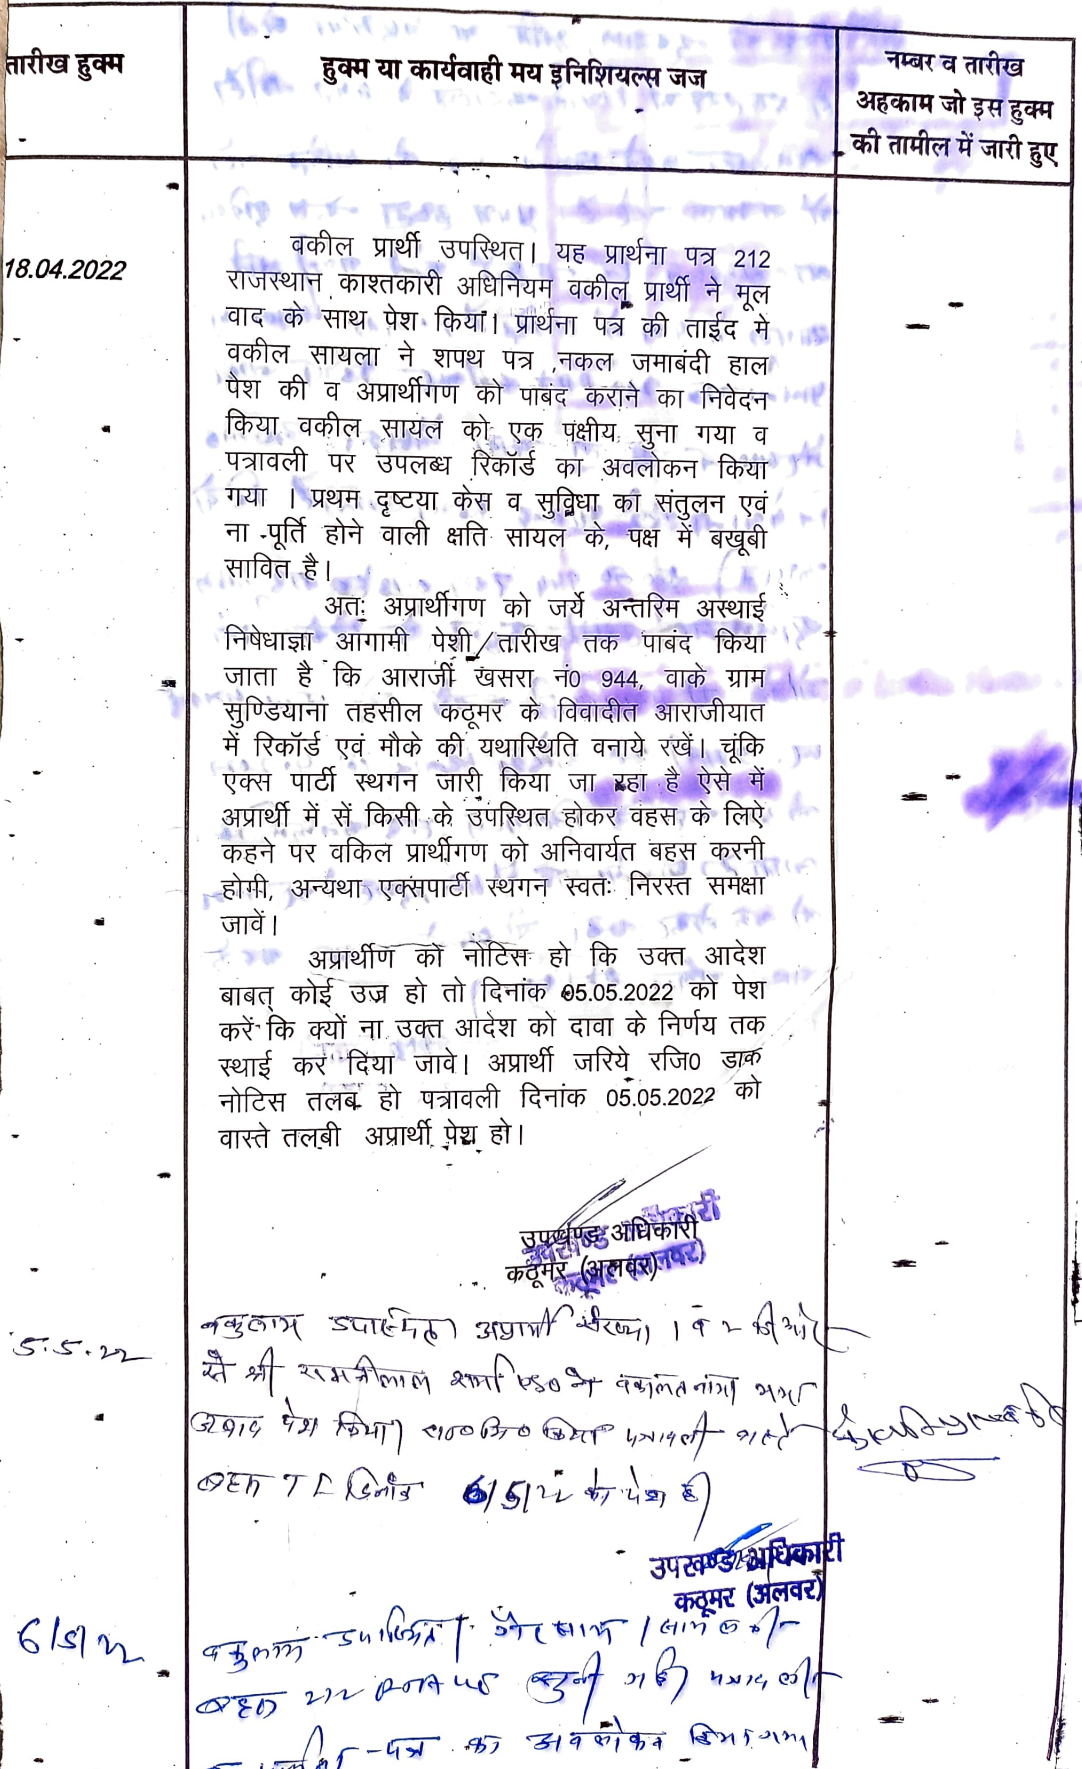 तारीख हुक्म
हुक्म या कार्यवाही मय इनिशियल्स जज
नम्बर व तारीख
अहकाम जो इस हुक्म
की तामील में जारी हुए
18.04.2022
वकील प्रार्थी उपस्थित। यह प्रार्थना पत्र 212
राजस्थान काश्तकारी अधिनियम वकील प्रार्थी ने मूल
वाद के साथ पेश किया। प्रार्थना पत्र की ताईद मे
वकील सायला ने शपथ पत्र ,नकल जमाबंदी हाल
पेश की व अप्रार्थीगण को पाबंद कराने का निवेदन
किया वकील सायल को एक पक्षीय सुना गया व
पत्रावली पर उपलब्ध रिकॉर्ड का अवलोकन किया
गया । प्रथम दृष्टया केस व सुविधा का संतुलन एवं
ना पूर्ति होने वाली क्षति सायल के, पक्ष में बखूबी
सावित है।
अतः अप्रार्थीगण को जर्ये अन्तरिम अस्थाई
निषेधाज्ञा आगामी पेशी/तारीख तक पाबंद किया
जाता है कि आराजी खसरा नं0 944, वाके ग्राम
सुण्डियाना तहसील कठूमर के विवादीत आराजीयात
में रिकॉर्ड एवं मौके की यथास्थिति वनाये रखें। चूंकि
एक्स पार्टी स्थगन जारी किया जा रहा है ऐसे में
अप्रार्थी में सें किसी के उपस्थित होकर वहस के लिऐ
कहने पर वकिल प्रार्थीगण को अनिवार्यत बहस करनी
होगी, अन्यथा एक्सपार्टी स्थगन स्वतः निरस्त समक्षा
जावें।
अप्रार्थीण को नोटिस हो कि उक्त आदेश
बाबत् कोई उज्र हो तो दिनांक 05.05.2022 को पेश
करें कि क्यों ना उक्त आदेश को दावा के निर्णय तक
स्थाई कर दिया जावे। अप्रार्थी जरिये रजि0 डाक
नोटिस तलब हो पत्रावली दिनांक 05.05.2022 को
वास्ते तलबी अप्रार्थी पेश हो।
उपखण्ड अधिकारी
कठूमर (अलवर)
5.5.22
उपस्थित। अप्रार्थी संख्या 1 व 2 की ओर
से श्री शर्मा ने वकालतनामा मय
जवाब पेश किया। पत्रावली वास्ते
बहस T I दिनांक 6/5/22 को पेश हो
उपखण्ड अधिकारी
कठूमर (अलवर)
6/5/22
उपस्थित।
बहस सुनी गई। पत्रावली
पत्र का अवलोकन किया गया